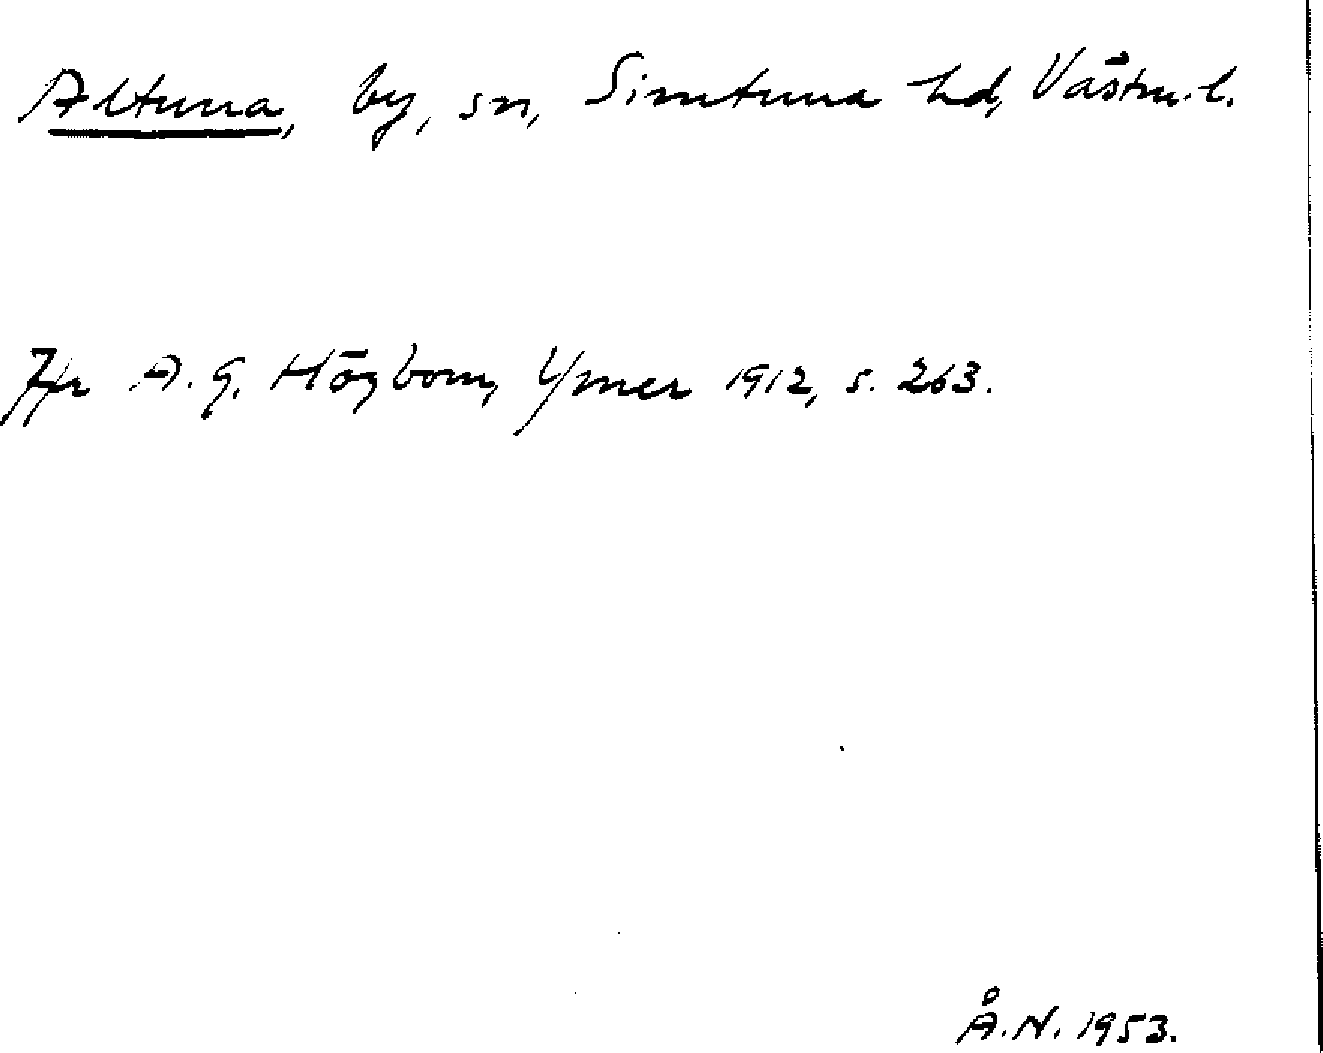 Altuna, by, sn, Simtuna hd, Västm. l.
Jfr A. G. Högbom, Ymer 1912, s. 263.
Å. N. 1953.